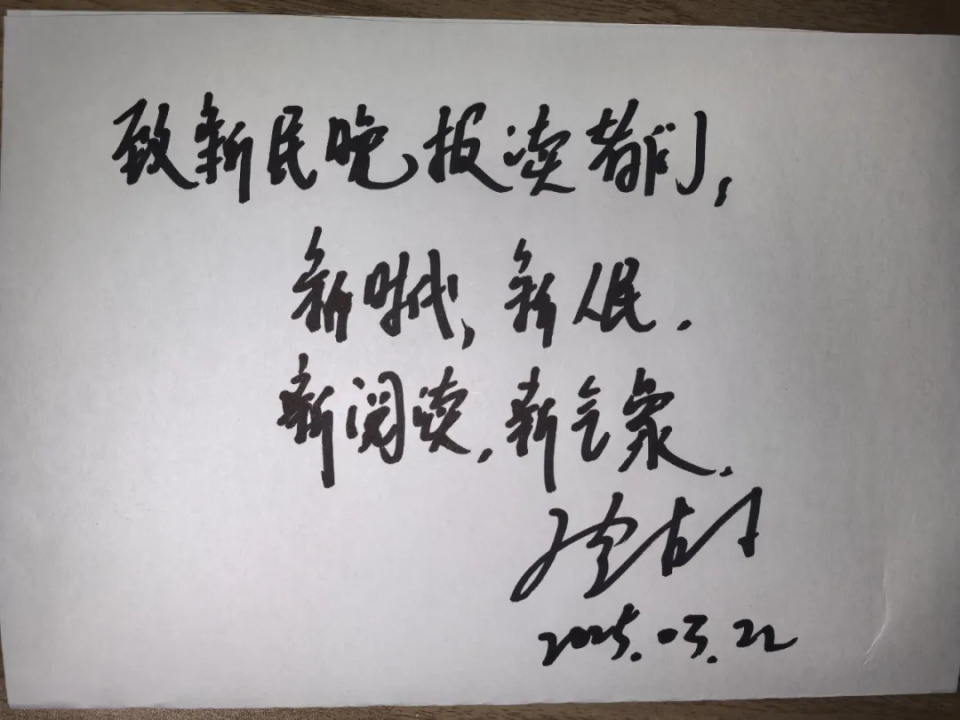 致新民晚报读者们，
新时代，新人民．
新阅读，新气象．
2025.03.22